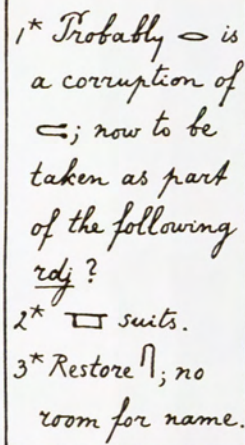 1* Probably 𓂋 is
a corruption of
; now to be
taken as part
of the following
rdj ?
2* suits.
3* Restore 𓋴; no
room for name.